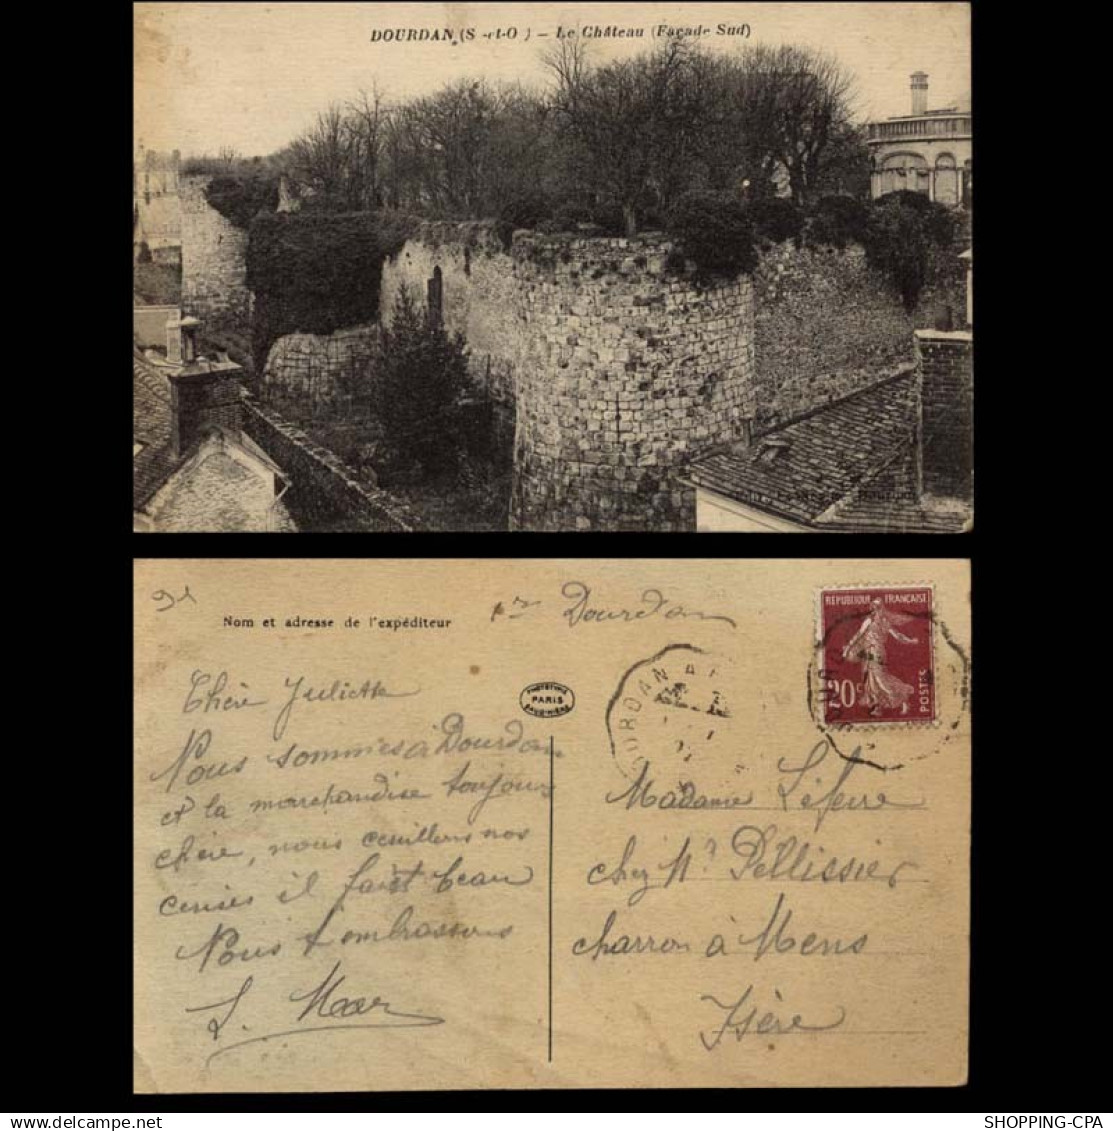 DOURDAN (S-et-O) – Le Château (Façade Sud)
91
Nom et adresse de l'expéditeur
Dourdan
REPUBLIQUE FRANÇAISE
20c
POSTES
PARIS
DOURDAN A
Chère Juliette
Nous sommes à Dourdan
et la marchandise toujours
chère, nous ceuillons nos
cerises il fait beau
Nous t'embrassons
Madame Lefevre
chez Mr Pellissier
charron à Mens
Isère
SHOPPING-CPA